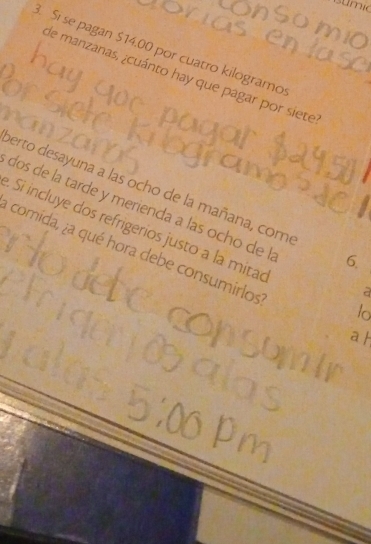 sumic
consomio
orias en las
3. Si se pagan $14.00 por cuatro kilogramos
de manzanas, ¿cuánto hay que pagar por siete?
hay que pagar $24.50
Por siete kilogramos de
manzanas
lberto desayuna a las ocho de la mañana, come
s dos de la tarde y merienda a las ocho de la
e. Si incluye dos refrigerios justo a la mitad
a comida, ¿a qué hora debe consumirlos?
debe consumir
efrigerios a las
y a las 5:00 pm
6.
a
lo
a h